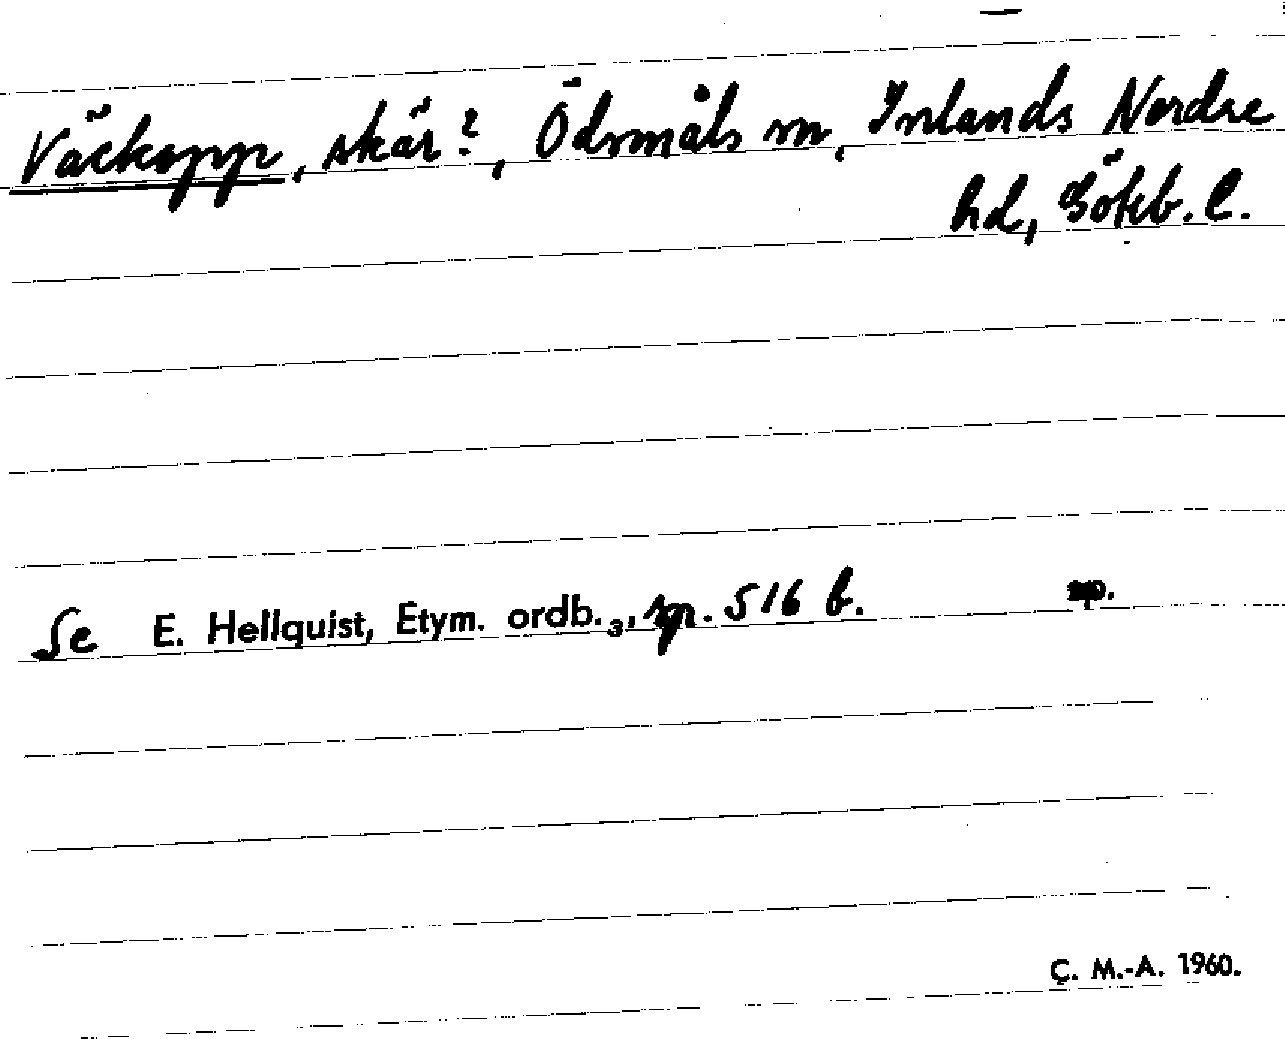 Väckopp, skär?, Ödsmåls sn, Inlands Nordre
hd, Göteb. l.
Se E. Hellquist, Etym. ordb.₃, sp. 516 b.
C. M.-A. 1960.